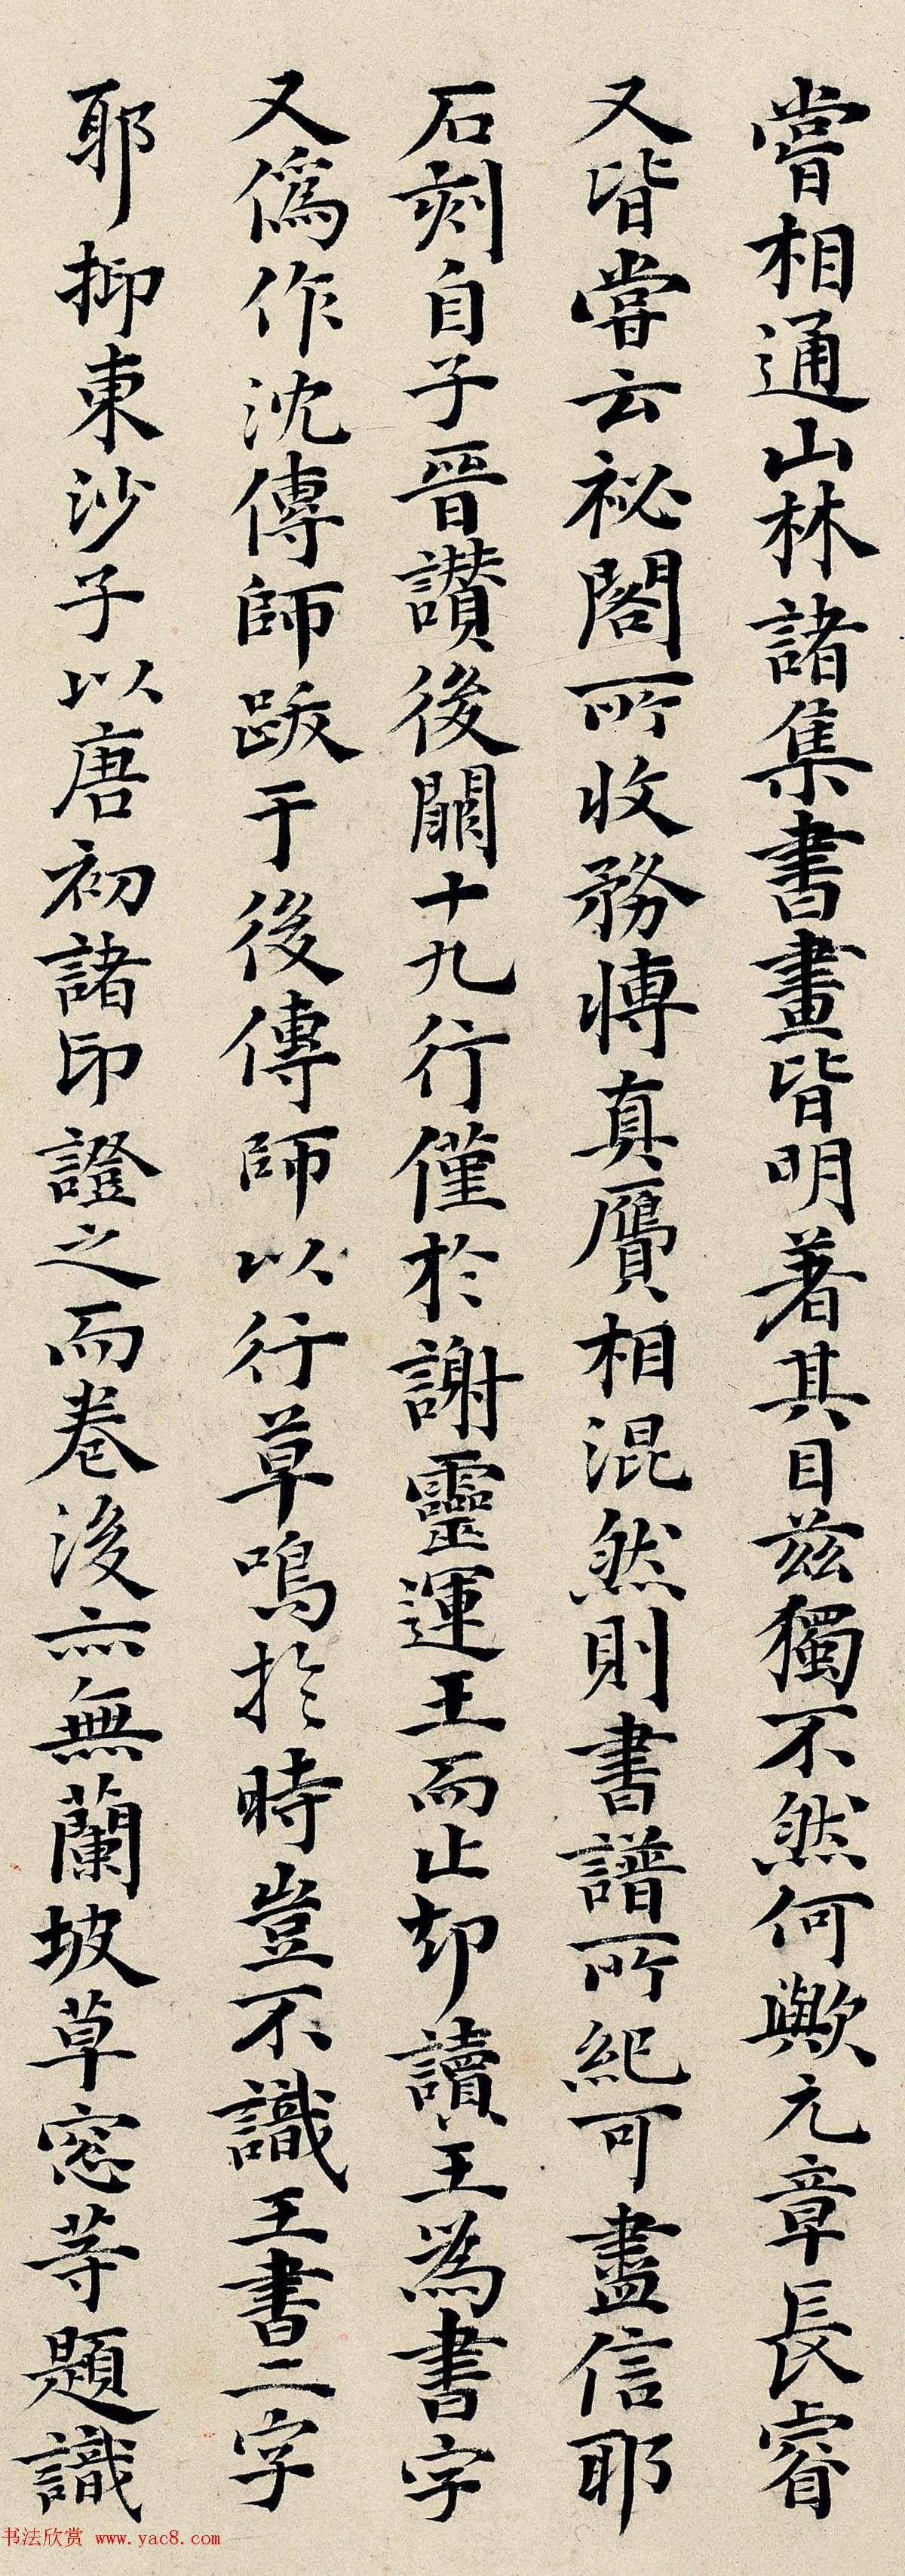 嘗相通山林諸集書畫皆明著其目兹獨不然何歟元章長睿
又皆嘗云祕閣所收務慱真贋相混然則書譜所紀可盡信耶
石刻自子晉讃後闕十九行僅於謝靈運王而止却讀王為書字
又偽作沈傳師跋于後傳師以行草鳴於時豈不識王書二字
耶抑東沙子以唐初諸印證之而卷後亦無蘭坡草窓等題識
书法欣赏 www.yac8.com